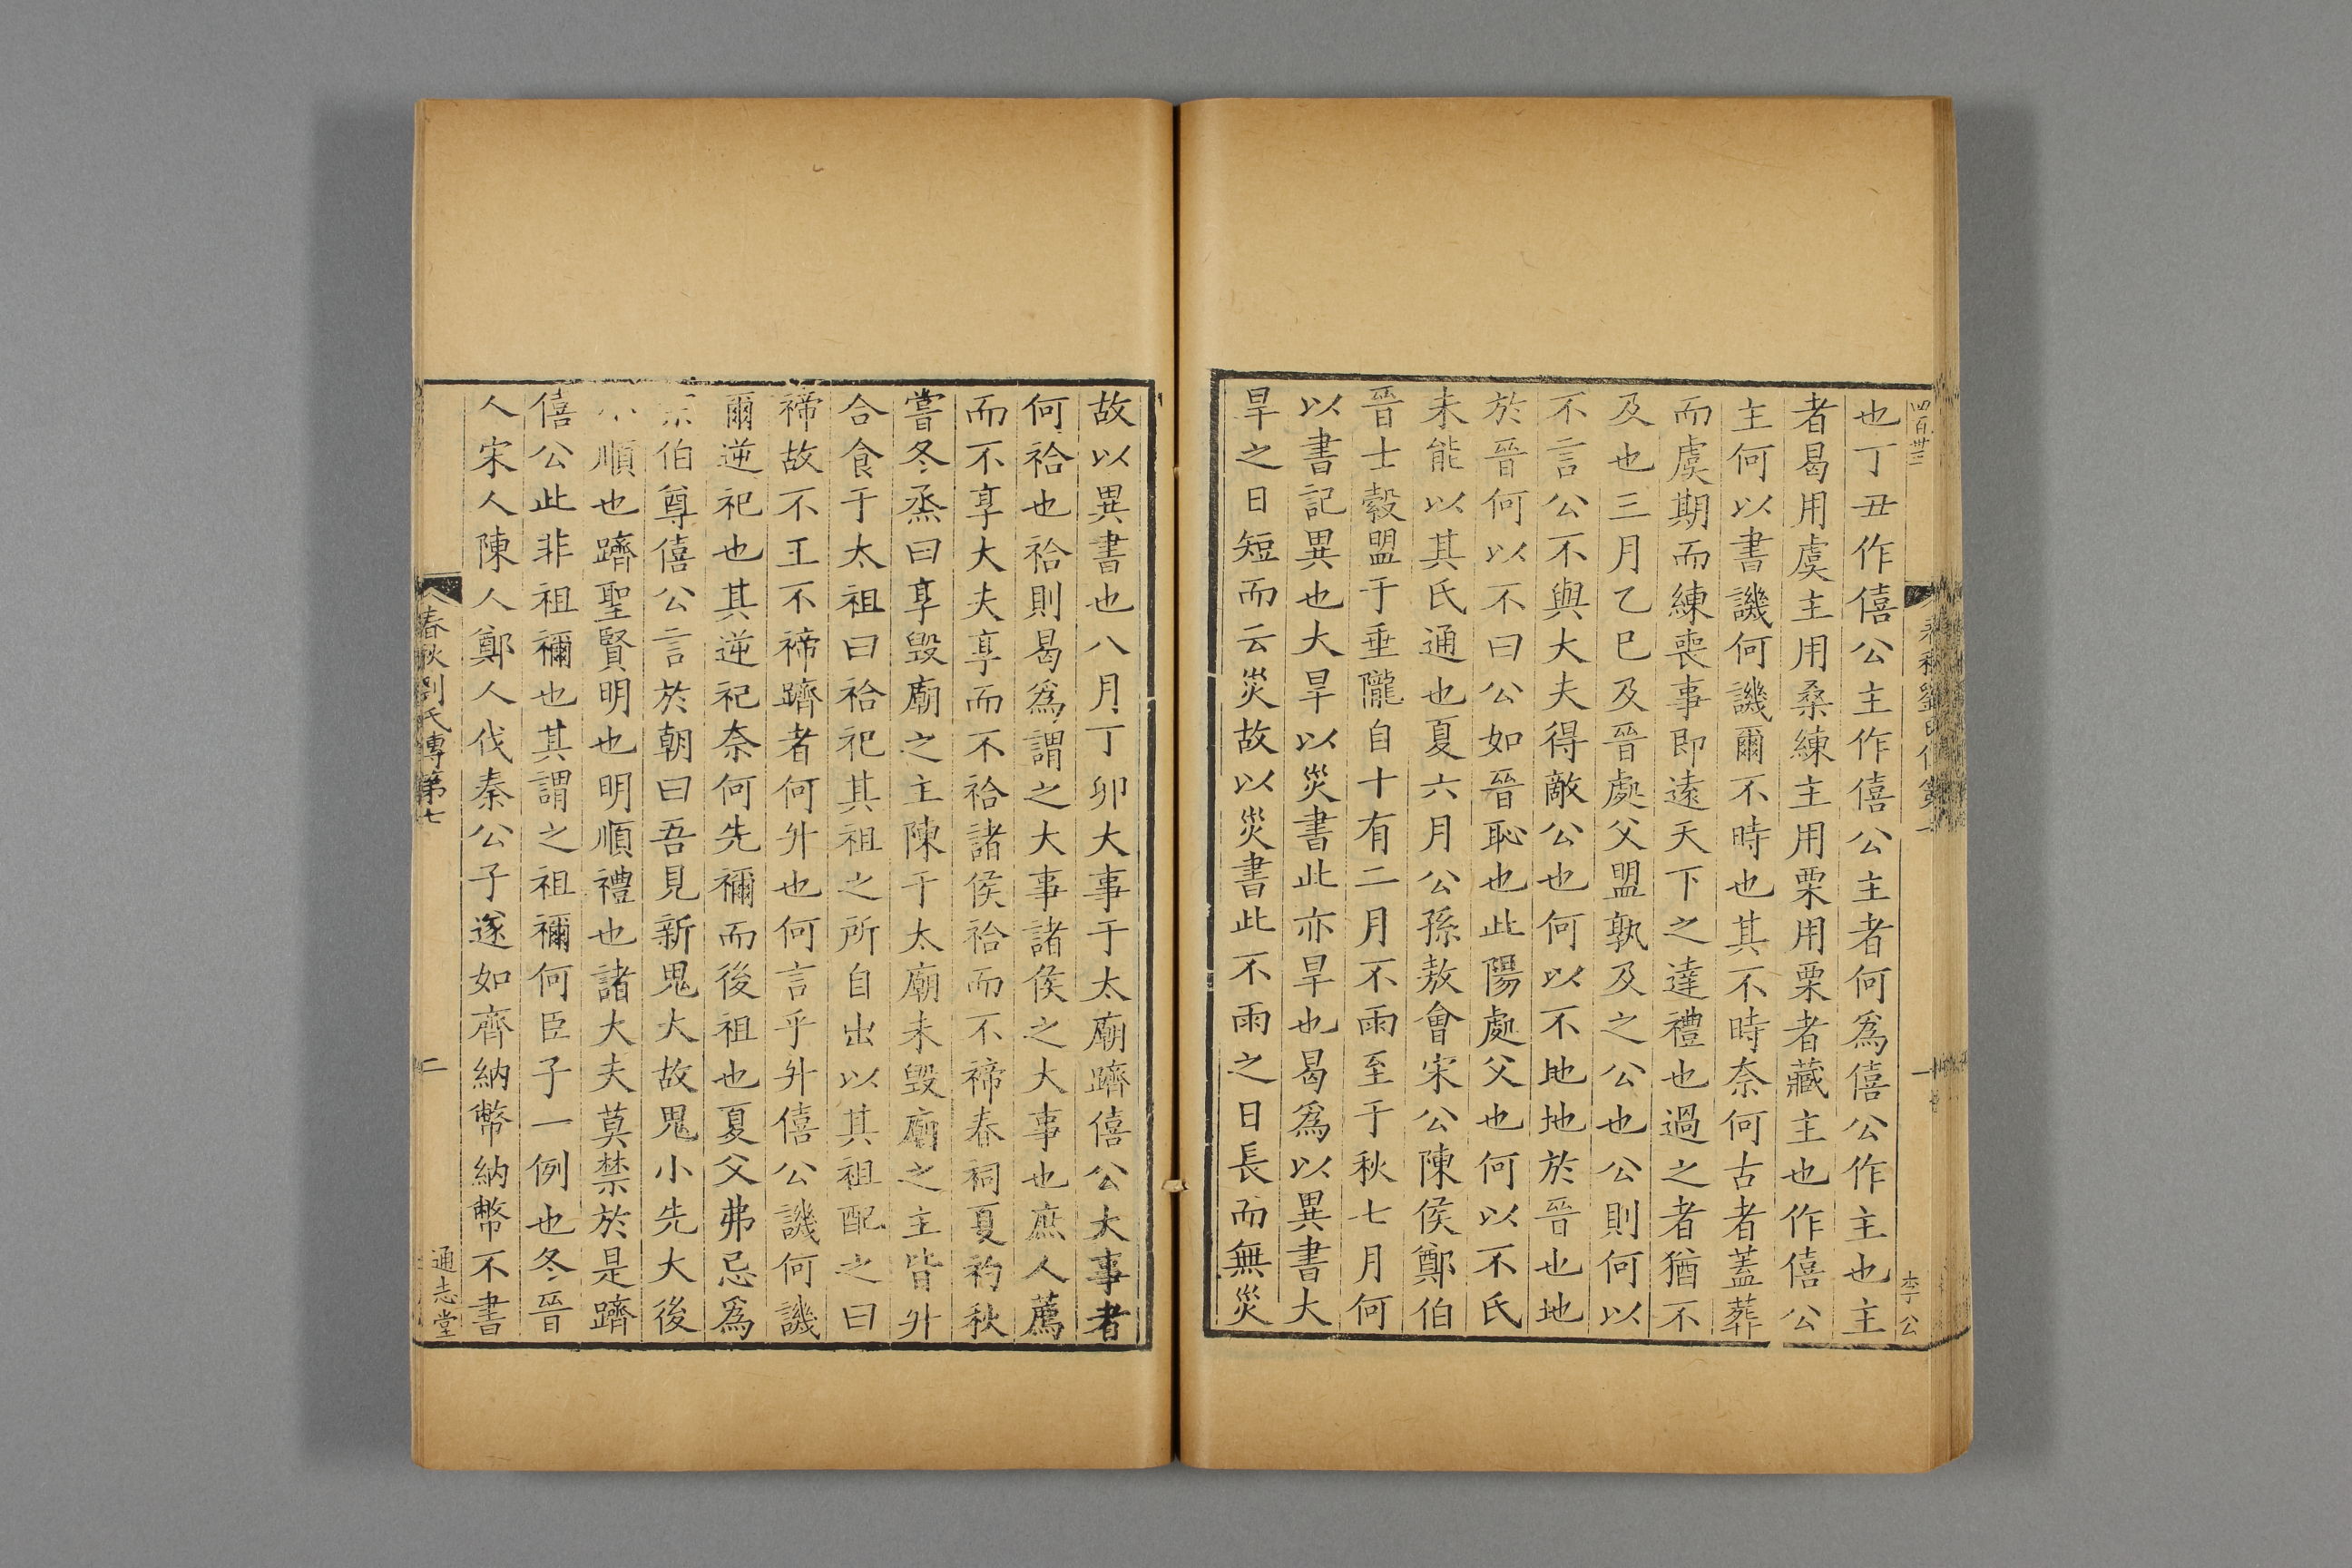 四百卅三
李公
也丁丑作僖公主作僖公主者何爲僖公作主也主
者曷用虞主用桑練主用栗用栗者藏主也作僖公
主何以書譏何譏爾不時也其不時奈何古者蓋葬
而虞期而練喪事即遠天下之達禮也過之者猶不
及也三月乙巳及晉處父盟孰及之公也公則何以
不言公不與大夫得敵公也何以不地地於晉也地
於晉何以不曰公如晉恥也此陽處父也何以不氏
未能以其氏通也夏六月公孫敖會宋公陳侯鄭伯
晉士縠盟于垂隴自十有二月不雨至于秋七月何
以書記異也大旱以災書此亦旱也曷爲以異書大
旱之日短而云災故以災書此不雨之日長而無災
故以異書也八月丁卯大事于太廟躋僖公大事者
何祫也祫則曷爲謂之大事諸侯之大事也庶人薦
而不享大夫享而不祫諸侯祫而不禘春祠夏礿秋
嘗冬烝曰享毀廟之主陳于太廟未毀廟之主皆升
合食于太祖曰祫祀其祖之所自出以其祖配之曰
禘故不王不禘躋者何升也何言乎升僖公譏何譏
爾逆祀也其逆祀奈何先禰而後祖也夏父弗忌爲
宗伯尊僖公言於朝曰吾見新鬼大故鬼小先大後
小順也躋聖賢明也明順禮也諸大夫莫禁於是躋
僖公此非祖禰也其謂之祖禰何臣子一例也冬晉
人宋人陳人鄭人伐秦公子遂如齊納幣納幣不書
春秋劉氏傳第七
二
通志堂